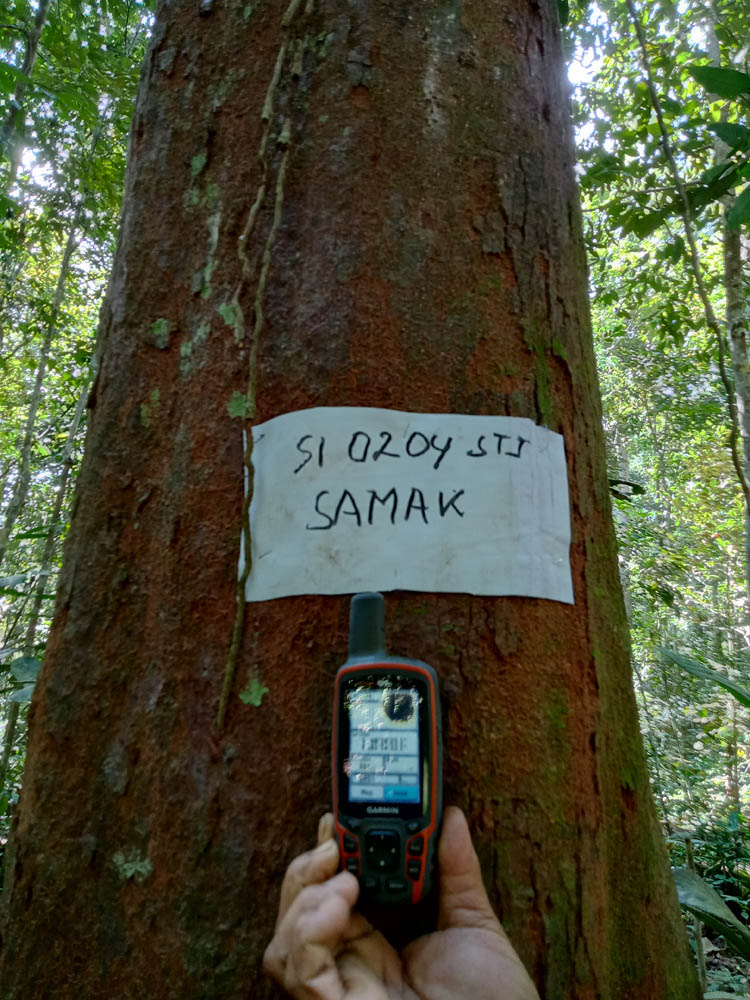 SI 0204 STJ
SAMAK
GARMIN